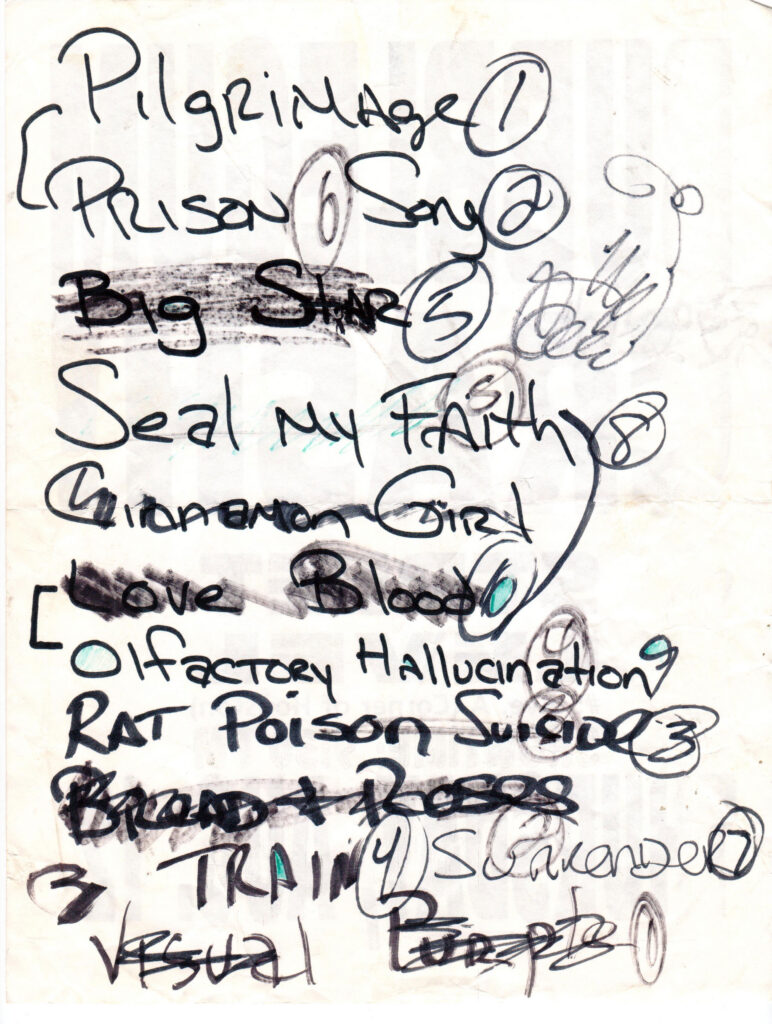 Pilgrimage 1
Prison 6 Song 2
Big Star 5
Seal My Faith 5 8
Cinnamon Girl
Love Blood 6
Olfactory Hallucination 4 9
Rat Poison Suicide 3
Bread + Roses
3 Train 4 Surrender 7
Vesual